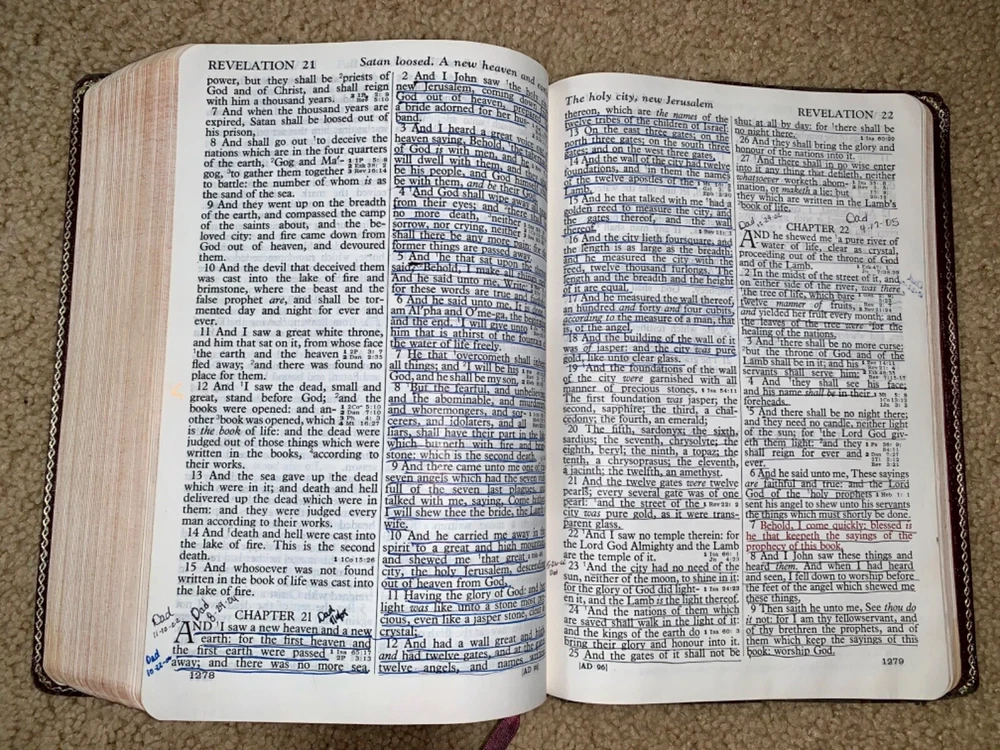 REVELATION 21 Satan loosed. A new heaven and
power, but they shall be ²priests of
God and of Christ, and shall reign
with him a thousand years.
7 And when the thousand years are
expired, Satan shall be loosed out of
his prison,
8 And shall go out ¹to deceive the
nations which are in the four quarters
of the earth, ²Gog and Ma´-
gog, ³to gather them together
to battle: the number of whom is as
the sand of the sea.
9 And they went up on the breadth
of the earth, and compassed the camp
of the saints about, and the be-
loved city: and fire came down from
God out of heaven, and devoured
them.
10 And the devil that deceived them
was cast into the lake of fire and
brimstone, where the beast and the
false prophet are, and shall be tor-
mented day and night for ever and
ever.
11 And I saw a great white throne,
and him that sat on it, from whose face
¹the earth and the heaven
fled away; ²and there was found no
place for them.
12 And ¹I saw the dead, small and
great, stand before God; ²and the
books were opened: and an-
other ³book was opened, which
is the book of life: and the dead were
judged out of those things which were
written in the books, ⁴according to
their works.
13 And the sea gave up the dead
which were in it; and death and hell
delivered up the dead which were in
them: and they were judged every
man according to their works.
14 And ¹death and hell were cast into
the lake of fire. This is the second
death. 1 1Co 15:26
15 And whosoever was not found
written in the book of life was cast into
the lake of fire.
Dad
11-10-02
Dad
Dad
CHAPTER 21
AND I saw a new heaven and a new
earth: for the first heaven and
the first earth were passed
away; and there was no more sea.
Dad
1278
2 And I John saw ¹the holy
new Jerusalem, coming down
God out of heaven, prepared
a bride adorned for her hus-
band.
3 And I heard a great voice
heaven saying, Behold,
of God is with men, and he
will dwell with them,
be his people, and God himself
be with them, and be their
4 And God shall wipe away
from their eyes; and there
no more death, neither
sorrow, nor crying, neither
shall there be any more pain: for
former things are passed away.
5 And ¹he that sat upon the
said, ²Behold, I make all
And he said unto me, Write:
for these words are true and
6 And he said unto me, It
am Al´pha and O´me-ga, the
and the end. I will give unto
him that is athirst of the fountain
the water of life freely.
7 He that ¹overcometh shall
all things; and ²I will be his
God, and he shall be my son.
8 ¹But the fearful, and unbelieving,
and the abominable, and
and whoremongers, and sor-
cerers, and idolaters, and all
liars, shall have their part in the
which burneth with fire and brim-
stone: which is the second death.
9 And there came unto me one of
seven angels which had the seven
full of the seven last plagues,
talked with me, saying, Come
I will shew thee the bride, the Lamb's
wife.
10 And he carried me away in
spirit ¹to a great and high mountain,
and shewed me ²that great
city, the holy Jerusalem, descending
out of heaven from God,
11 Having the glory of God: and
light was like unto a stone most
cious, even like a jasper stone,
crystal;
12 And had a wall great and high,
and had twelve gates, and at the
twelve angels, and names
[AD 96]
The holy city, new Jerusalem REVELATION 22
thereon, which are the names of the
twelve tribes of the children of Israel:
13 On the east three gates; on the
north three gates; on the south
three gates; and on the west three gates.
14 And the wall of the city had twelve
foundations, and ¹in them the names
of the twelve apostles of the
Lamb.
15 And he that talked with me ¹had a
golden reed to measure the city, and
the gates thereof, and the wall
thereof.
16 And the city lieth foursquare, and
the length is as large as the breadth:
and he measured the city with the
reed, twelve thousand furlongs. The
length and the breadth and the height
of it are equal.
17 And he measured the wall thereof,
an hundred and forty and four cubits,
according to the measure of a man, that
is, of the angel.
18 And the building of the wall of it
was of jasper: and the city was pure
gold, like unto clear glass.
19 ¹And the foundations of the wall
of the city were garnished with all
manner of precious stones. 1 Isa 54:11
The first foundation was jasper; the
second, sapphire; the third, a chal-
cedony; the fourth, an emerald;
20 The fifth, sardonyx; the sixth,
sardius; the seventh, chrysolyte; the
eighth, beryl; the ninth, a topaz; the
tenth, a chrysoprasus; the eleventh,
a jacinth; the twelfth, an amethyst.
21 And the twelve gates were twelve
pearls; every several gate was of one
pearl: ¹and the street of the
city was pure gold, as it were trans-
parent glass.
22 ¹And I saw no temple therein: for
the Lord God Almighty and the Lamb
are the temple of it.
23 ¹And the city had no need of the
sun, neither of the moon, to shine in it:
for the glory of God did light-
en it, and the Lamb is the light thereof.
24 ¹And the nations of them which
are saved shall walk in the light of it:
and the kings of the earth do
bring their glory and honour into it.
25 And the gates of it shall not be
[AD 96]
shut at all by day: for ¹there shall be
no night there. 1 Isa 60:20
26 And they shall bring the glory and
honour of the nations into it.
27 ¹And there shall in no wise enter
into it any thing that defileth, neither
whatsoever worketh abom-
ination, or maketh a lie: but
they which are written in the Lamb's
²book of life.
Dad
Dad
9-17-05
CHAPTER 22
AND he shewed me ¹a pure river of
water of life, clear as crystal,
proceeding out of the throne of God
and of the Lamb.
2 In the midst of the street of it, and
on either side of the river, was there
¹the tree of life, which bare
twelve manner of fruits,
and yielded her fruit every month; and
the leaves of the tree were ²for the
healing of the nations.
3 And ¹there shall be no more curse:
²but the throne of God and of the
Lamb shall be in it; and his
servants shall serve him:
4 And ¹they shall see his face;
and ²his name shall be in their
foreheads.
¹5 And there shall be no night there;
and they need no candle, neither light
of the sun; for ²the Lord God giv-
eth them light: ³and they
shall reign for ever and
ever.
6 And he said unto me, These sayings
are faithful and true: and the Lord
God of the ¹holy prophets
sent his angel to shew unto his servants
the things which must shortly be done.
7 Behold, I come quickly: blessed is
he that keepeth the sayings of the
prophecy of this book.
8 And I John saw these things and
heard them. And when I had heard
and seen, I fell down to worship before
the feet of the angel which shewed me
these things.
9 Then saith he unto me, See thou do
it not: for I am thy fellowservant, and
of thy brethren the prophets, and of
them which keep the sayings of this
book: worship God.
1279